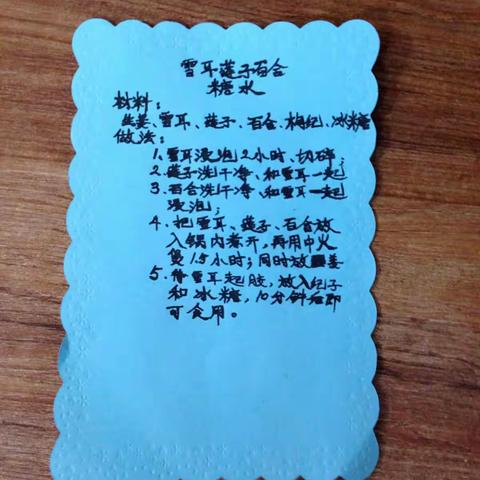 雪耳莲子百合
糖水
材料：
生姜、雪耳、莲子、百合、枸杞、冰糖
做法：
1、雪耳浸泡2小时、切碎；
2、莲子洗干净、和雪耳一起
3、百合洗干净、和雪耳一起
浸泡；
4、把雪耳、莲子、百合放
入锅内煮开，再用中火
煲1.5小时；同时放姜
5、待雪耳起胶，放入杞子
和冰糖，10分钟后即
可食用。